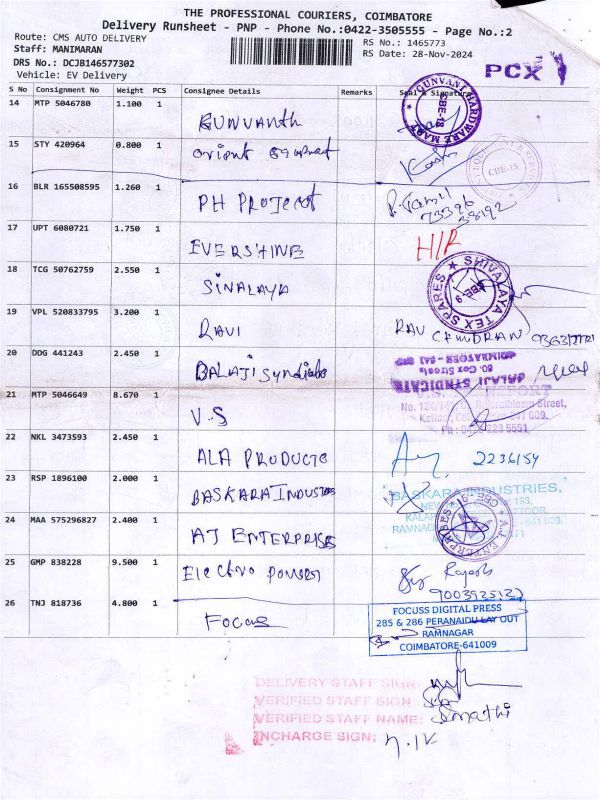 THE PROFESSIONAL COURIERS, COIMBATORE
Delivery Runsheet - PNP - Phone No.:0422-3505555 - Page No.:2
Route: CMS AUTO DELIVERY
Staff: MANIMARAN
DRS No.: DCJB146577302
Vehicle: EV Delivery
RS No.: 1465773
RS Date: 28-Nov-2024
PCX
S No Consignment No Weight PCS Consignee Details Remarks Seal & Signature
14 MTP 5046780 1.100 1 GUNVANTH
GUNVANT HARDWARE MART
CBE-18
15 STY 420964 0.800 1 Orient
CBE-18
16 BLR 165508595 1.260 1 PH PROJECT
P. Tamil
73396
38192
17 UPT 6080721 1.750 1 EVERSHINE
H/R
18 TCG 50762759 2.550 1 SINALAYA
SHIVALAYA TEX SPARES
19 VPL 520833795 3.200 1 RAVI
RAVI CHANDRAN
20 DDG 441243 2.450 1 BALAJI Syndicate
BALAJI SYNDICATE
80, Cox Street
21 MTP 5046649 8.670 1 V.S
Street,
Ph : 0422 223 5551
22 NKL 3473593 2.450 1 ALA PRODUCTS
2236154
23 RSP 1896100 2.000 1 BASKARA INDUSTRIES
BASKARA INDUSTRIES,
24 MAA 575296827 2.400 1 AJ ENTERPRISES
A.J. ENTERPRISES
25 GMP 838228 9.500 1 Electro power
Rajesh
9003925122
26 TNJ 818736 4.800 1 FOCUS
FOCUSS DIGITAL PRESS
285 & 286 PERANAIDU LAY OUT
RAMNAGAR
COIMBATORE-641009
DELIVERY STAFF SIGN:
VERIFIED STAFF SIGN
VERIFIED STAFF NAME: Sumathi
INCHARGE SIGN: